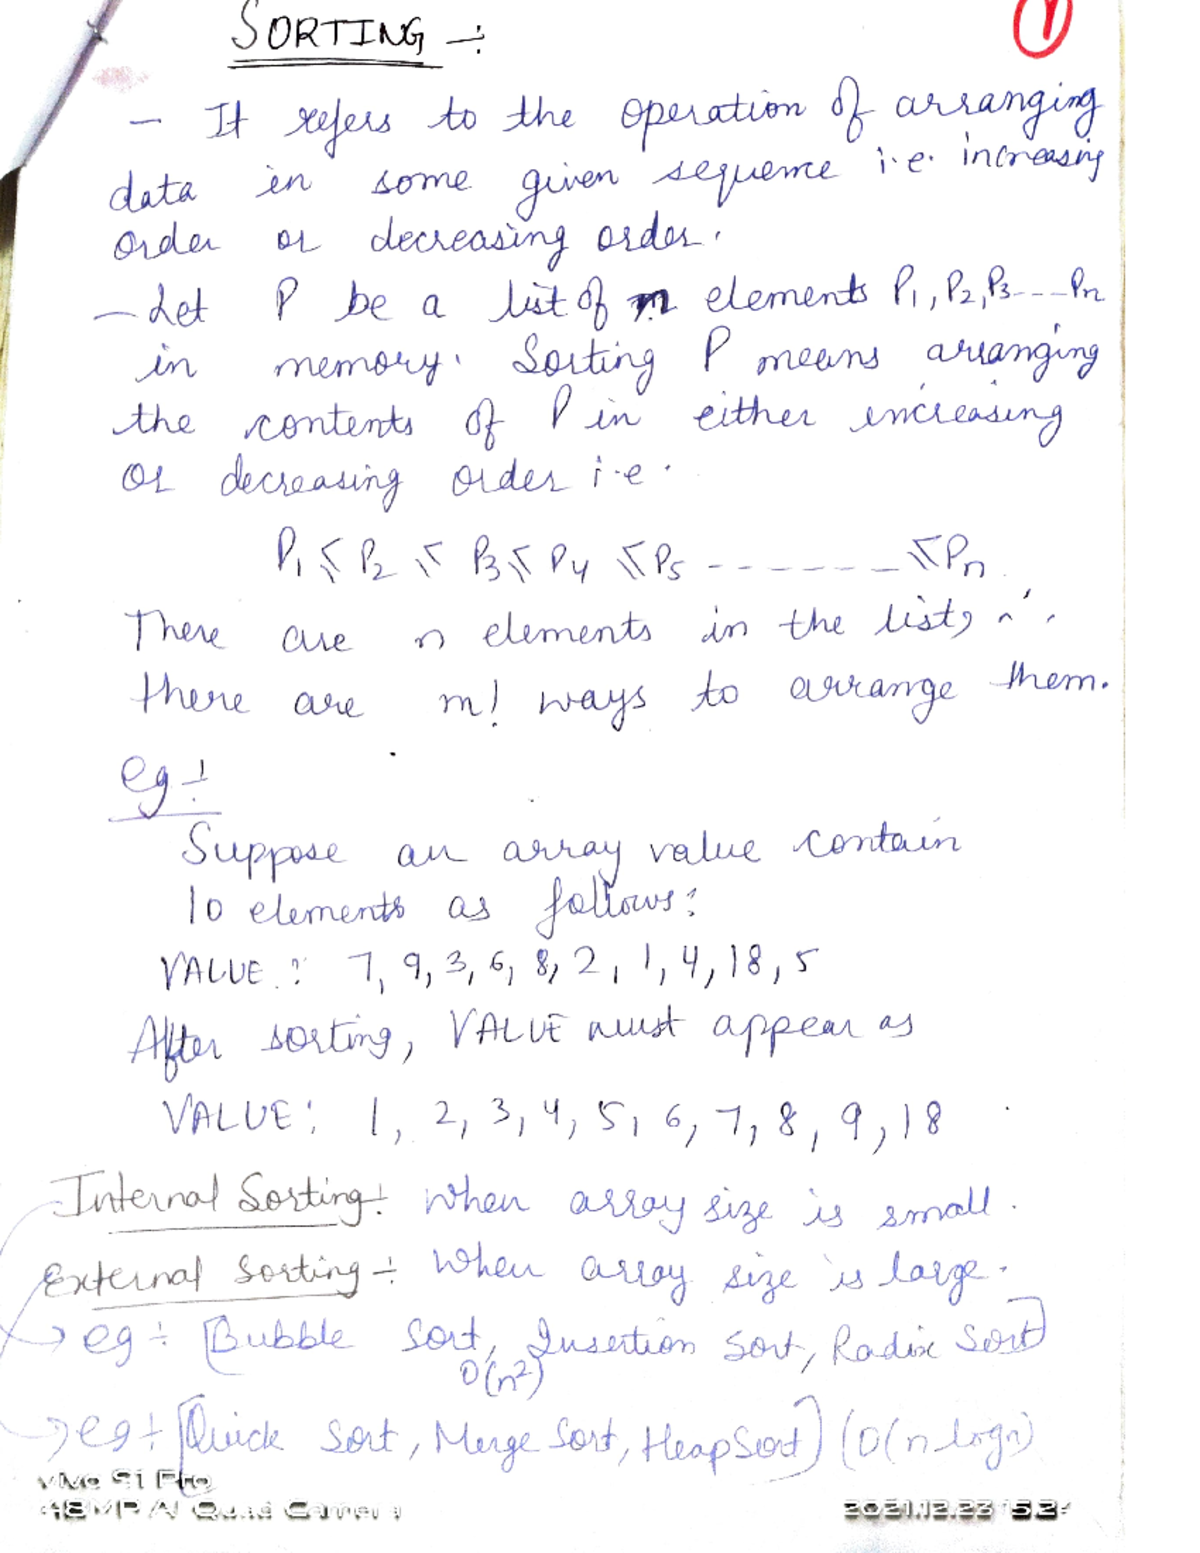 SORTING :-
1
- It refers to the operation of arranging
data in some given sequence i.e. increasing
order or decreasing order.
- Let P be a list of n elements P1, P2, P3 --- Pn
in memory. Sorting P means arranging
the contents of P in either increasing
or decreasing order i.e.
P1 ≤ P2 ≤ P3 ≤ P4 ≤ P5 ------- ≤ Pn
There are n elements in the list,
there are n! ways to arrange them.
eg :-
Suppose an array value contain
10 elements as follows:
VALUE : 7, 9, 3, 6, 8, 2, 1, 4, 18, 5
After sorting, VALUE must appear as
VALUE: 1, 2, 3, 4, 5, 6, 7, 8, 9, 18
Internal Sorting :- when array size is small.
External Sorting :- when array size is large.
→ eg :- [Bubble Sort, Insertion Sort, Radix Sort]
O(n²)
→ eg :- [Quick Sort, Merge Sort, Heap Sort] (O(n logn)
vivo S1 Pro
48MP AI Quad Camera
2021.12.23 15:24